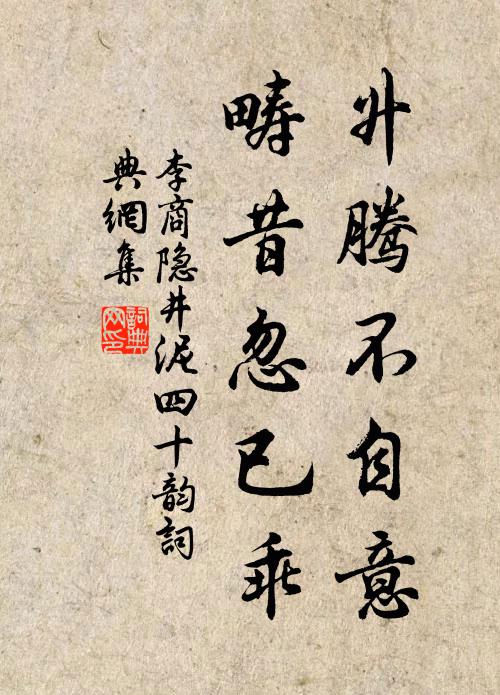 升腾不自意
畴昔忽已乖
李商隐井泥四十韵詞
典網集
詞典网印